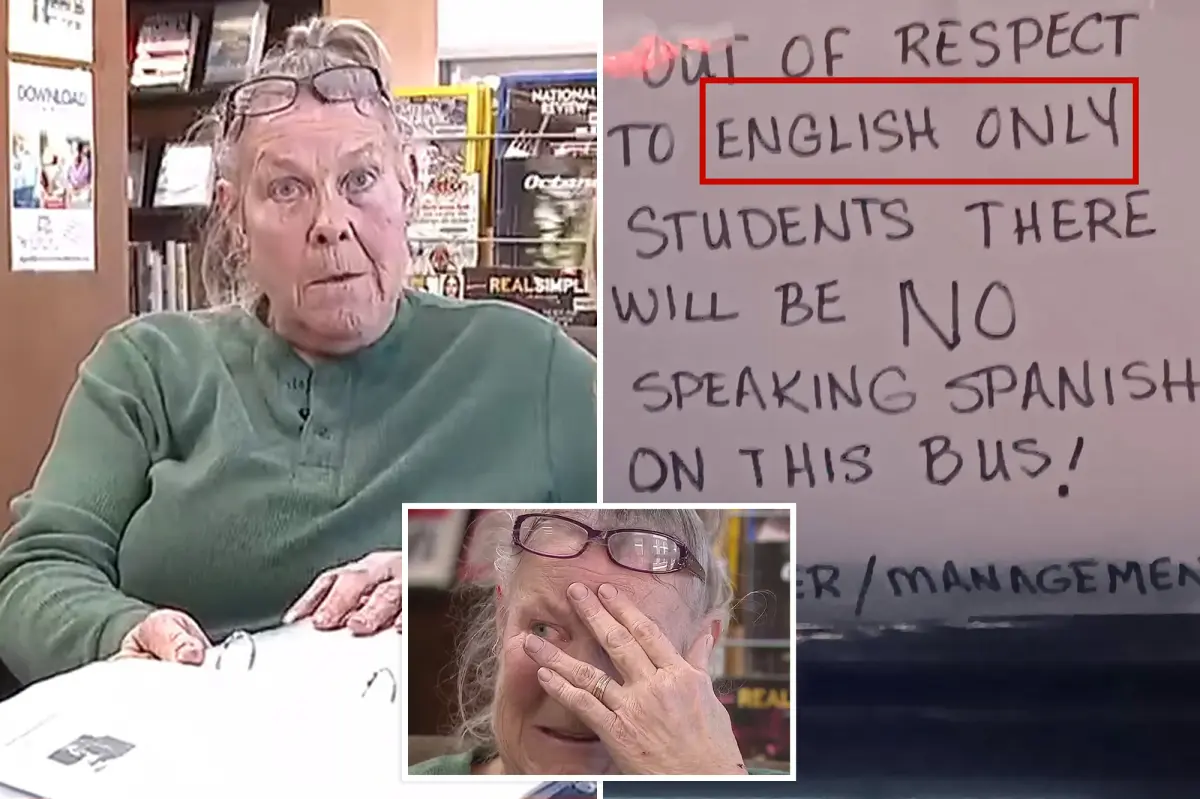 DOWNLOAD
NATIONAL
REVIEW
Octane
REALSIMPL
OUT OF RESPECT
TO ENGLISH ONLY
STUDENTS THERE
WILL BE NO
SPEAKING SPANISH
ON THIS BUS!
ER/MANAGEMEN
REAL